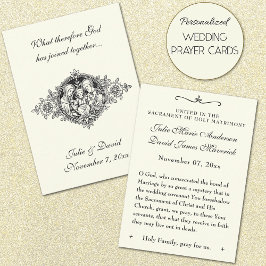 Personalized
WEDDING
PRAYER CARDS
What therefore God
has joined together...
Julie & David
November 7, 20xx
UNITED IN THE
SACRAMENT OF HOLY MATRIMONY
Julie Marie Anderson
David James Maverick
November 07, 20xx
O God, who consecrated the bond of
Marriage by so great a mystery that in
the wedding covenant You foreshadow
the Sacrament of Christ and His
Church, grant, we pray, to these Your
servants, that what they receive in faith
they may live out in deeds.
Holy Family, pray for us.